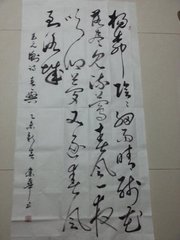 杨柳阴阴细雨晴残花
落尽见流莺春风一夜
吹乡梦又逐春风
到洛城
武元衡诗春兴乙未新春